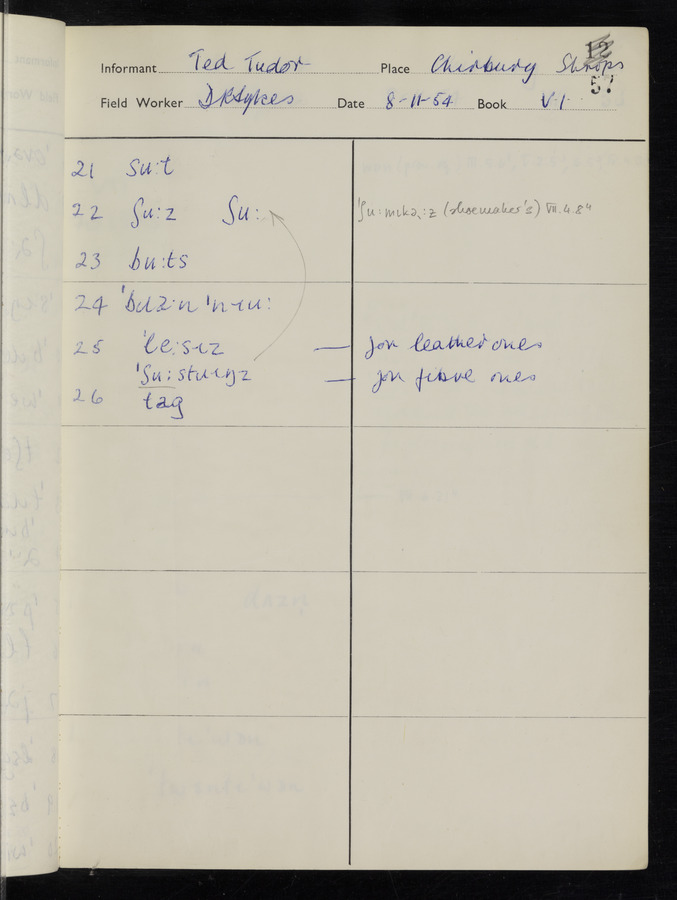 Informant Ted Tudor Place Chirbury Shrops 12
57
Field Worker D R Sykes Date 8-11-54 Book VI
21 su:t
22 ʃu:z ʃu: 'ʃu:mɪkə˞:z (shoemaker's) VII.4.8
23 bu:ts
24 
25 'le:sɪz — for leather ones
'ʃu:stɹɪŋz — for fibre ones
26 tag